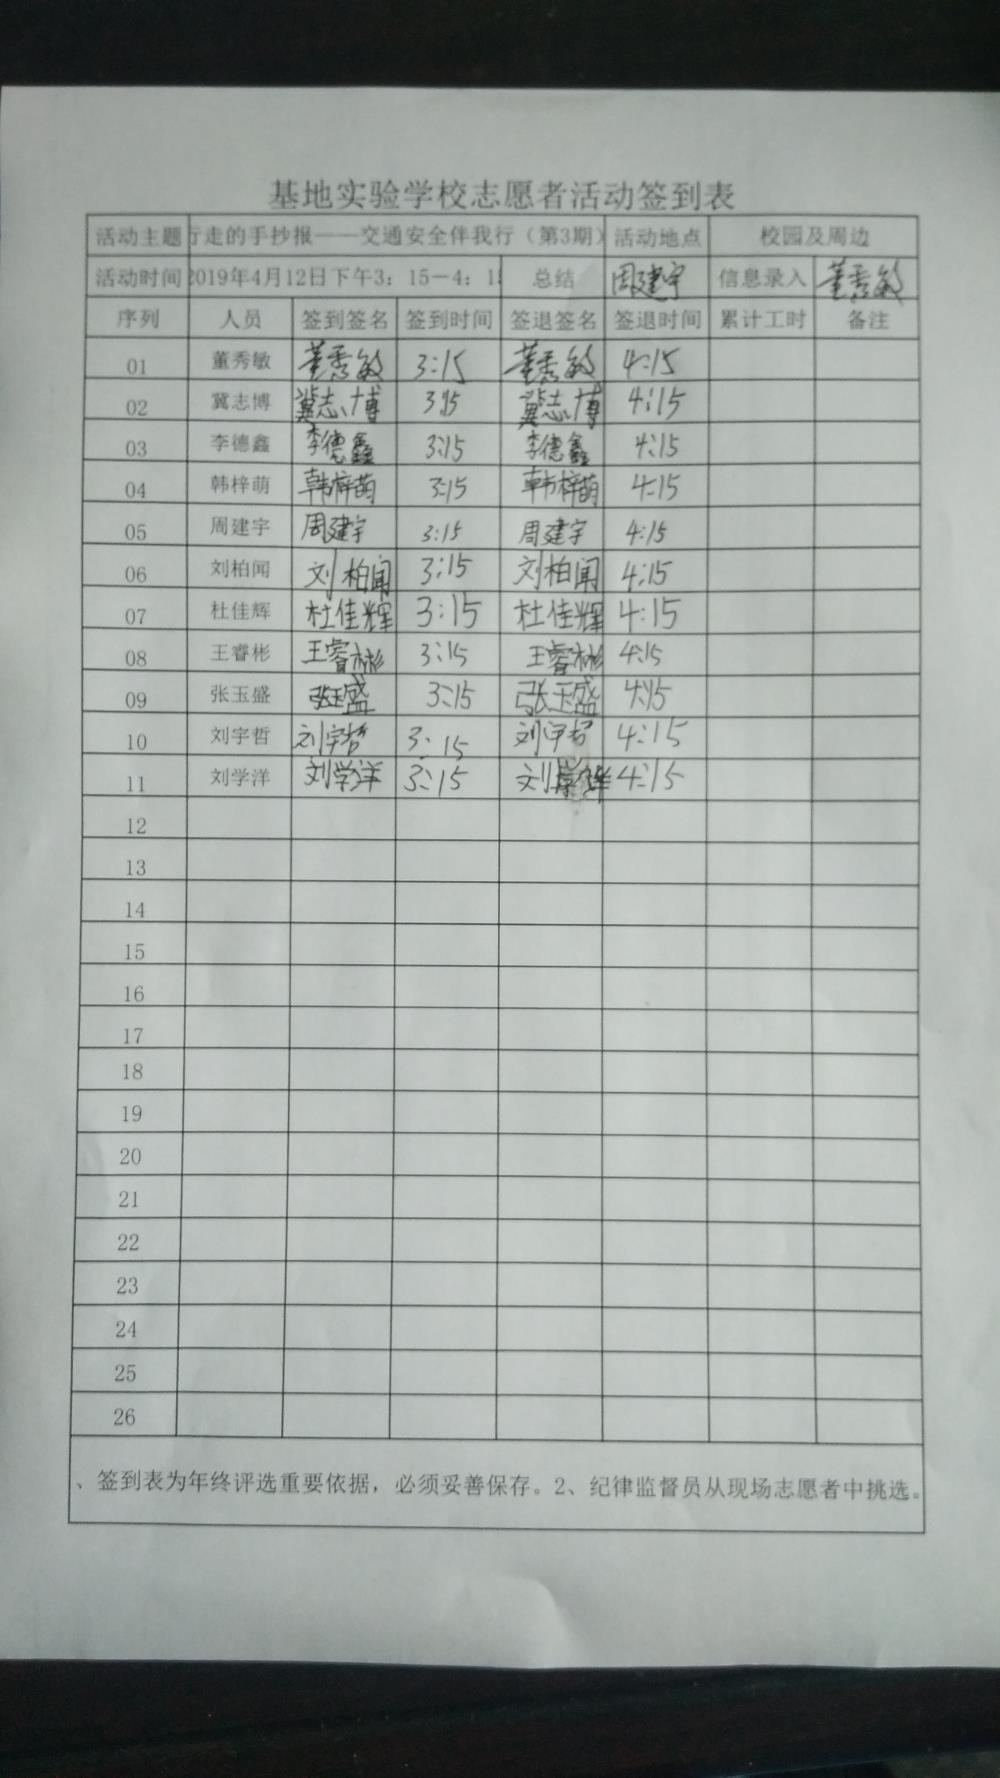 基地实验学校志愿者活动签到表
活动主题 行走的手抄报——交通安全伴我行（第3期） 活动地点 校园及周边
活动时间 2019年4月12日下午3：15－4：15 总结 周建宇 信息录入 董秀敏
序列 人员 签到签名 签到时间 签退签名 签退时间 累计工时 备注
01 董秀敏 董秀敏 3:15 董秀敏 4:15
02 冀志博 冀志博 3:15 冀志博 4:15
03 李德鑫 李德鑫 3:15 李德鑫 4:15
04 韩梓萌 韩梓萌 3:15 韩梓萌 4:15
05 周建宇 周建宇 3:15 周建宇 4:15
06 刘柏闻 刘柏闻 3:15 刘柏闻 4:15
07 杜佳辉 杜佳辉 3:15 杜佳辉 4:15
08 王睿彬 王睿彬 3:15 王睿彬 4:15
09 张玉盛 张玉盛 3:15 张玉盛 4:15
10 刘宇哲 刘宇哲 3:15 刘宇哲 4:15
11 刘学洋 刘学洋 3:15 刘学洋 4:15
12
13
14
15
16
17
18
19
20
21
22
23
24
25
26
、签到表为年终评选重要依据，必须妥善保存。2、纪律监督员从现场志愿者中挑选。